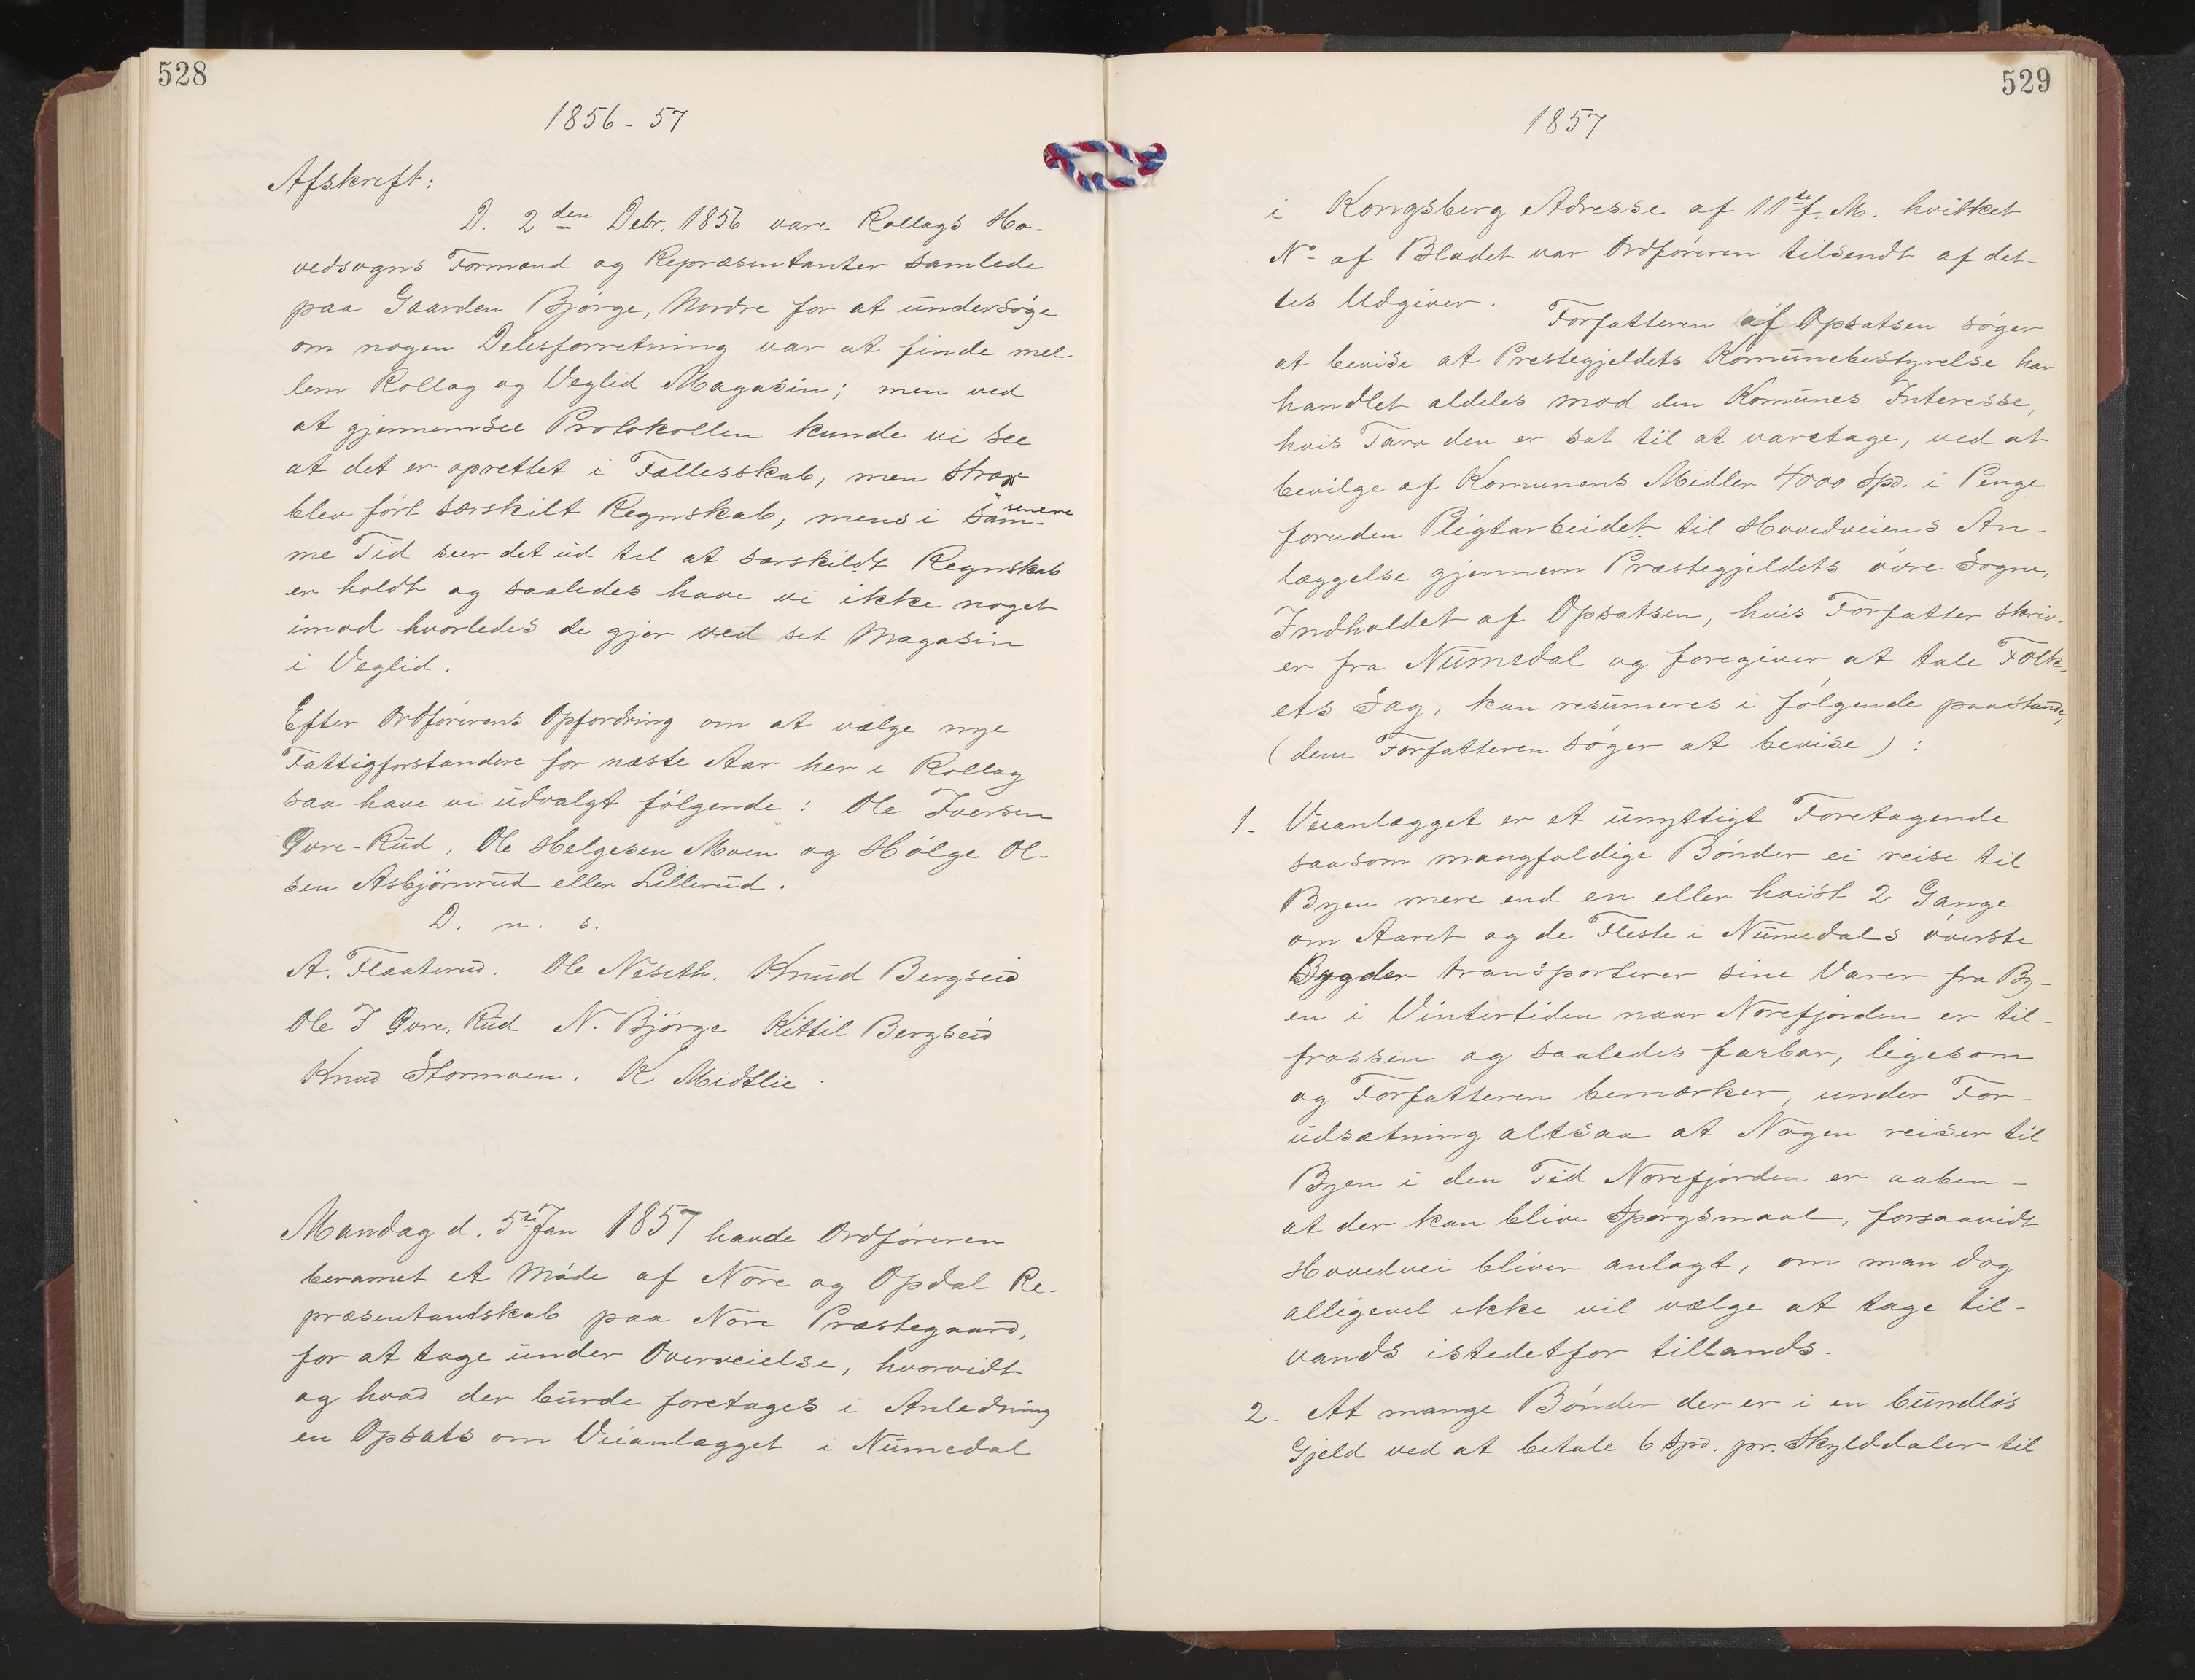 528
1856-57
Afskreft:
D. 2den Debr. 1856 vare Rollags Ho-
vedsogns Formænd og Repræsentanter samlede
paa Gaarden Bjørge, Nordre for at undersøge
om nogen Delesforretning var at finde mel-
lem Rollag og Veglid Magasin; men ved
at gjennemsee Protokollen kunde vi see
at det er oprettet i Fællesskab, men strax
blev ført særskilt Regnskab, mens i senere sam-
me Tid seer det ud til at særskildt Regnskab
er holdt og saaledes have vi ikke noget
imod hvorledes de gjør ved set Magasin
i Veglid.
Efter Ordførerens Opfordring om at vælge nye
Fattigforstandere for næste Aar her i Rollag
saa have vi udvalgt følgende: Ole Iversen
Øvre-Rud, Ole Helgesen Moen og Hølge Ol-
sen Asbjørnrud eller Lillerud.
D. n. s.
A. Flaaterud. Ole Neseth. Knud Bergseid
Ole I Øvre. Rud N. Bjørge Kittil Bergseid
Knud Stormoen. K Midtlie.
Mandag d. 5te Jan 1857 havde Ordføreren
beramet et Møde af Nore og Opdal Re-
præsentandskab paa Nore Præstegaard,
for at tage under Overveielse, hvorvidt
og hvad der burde foretages i Anledning
en Opsats om Veianlægget i Numedal
529
1857
i Kongsberg Adresse af 11te f. M. hvilket
No af Bladet var Ordføreren tilsendt af det-
tes Udgiver.
Forfatteren af Opsatsen søger
at bevise at Prestegjeldets Komunebestyrelse har
handlet aldeles mod den Komunes Interesse,
hvis Tarv den er sat til at varetage, ved at
bevilge af Komunens Midler 4000 Spd. i Penge
foruden Pligtarbeidet til Hovedveiens An-
læggelse gjennem Præstegjeldets øvre Sogne,
Indholdet af Opsatsen, hvis Forfatter skriv-
er fra Numedal og foregiver at tale Folk-
ets Sag, kan resumeres i følgende paastande,
(dem Forfatteren søger at bevise):
1. Veianlægget er et unyttigt Foretagende
saasom mangfoldige Bønder ei reise til
Byen mere end en eller høist 2 Gange
om Aaret og de Fleste i Numedals øverste
Bygder transporterer sine Varer fra By-
en i Vintertiden naar Norefjorden er til-
frossen og saaledes farbar, ligesom
og Forfatteren bemærker, under For-
udsætning altsaa at Nogen reiser til
Byen i den Tid Norefjorden er aaben -
at der kan blive Spørgsmaal, forsaavidt
Hovedvei bliver anlagt, om man dog
alligevel ikke vil vælge at tage til-
vands istedetfor tillands.
2. At mange Bønder der er i en bundløs
Gjeld ved at betale 6 Spd. pr. Skylddaler til